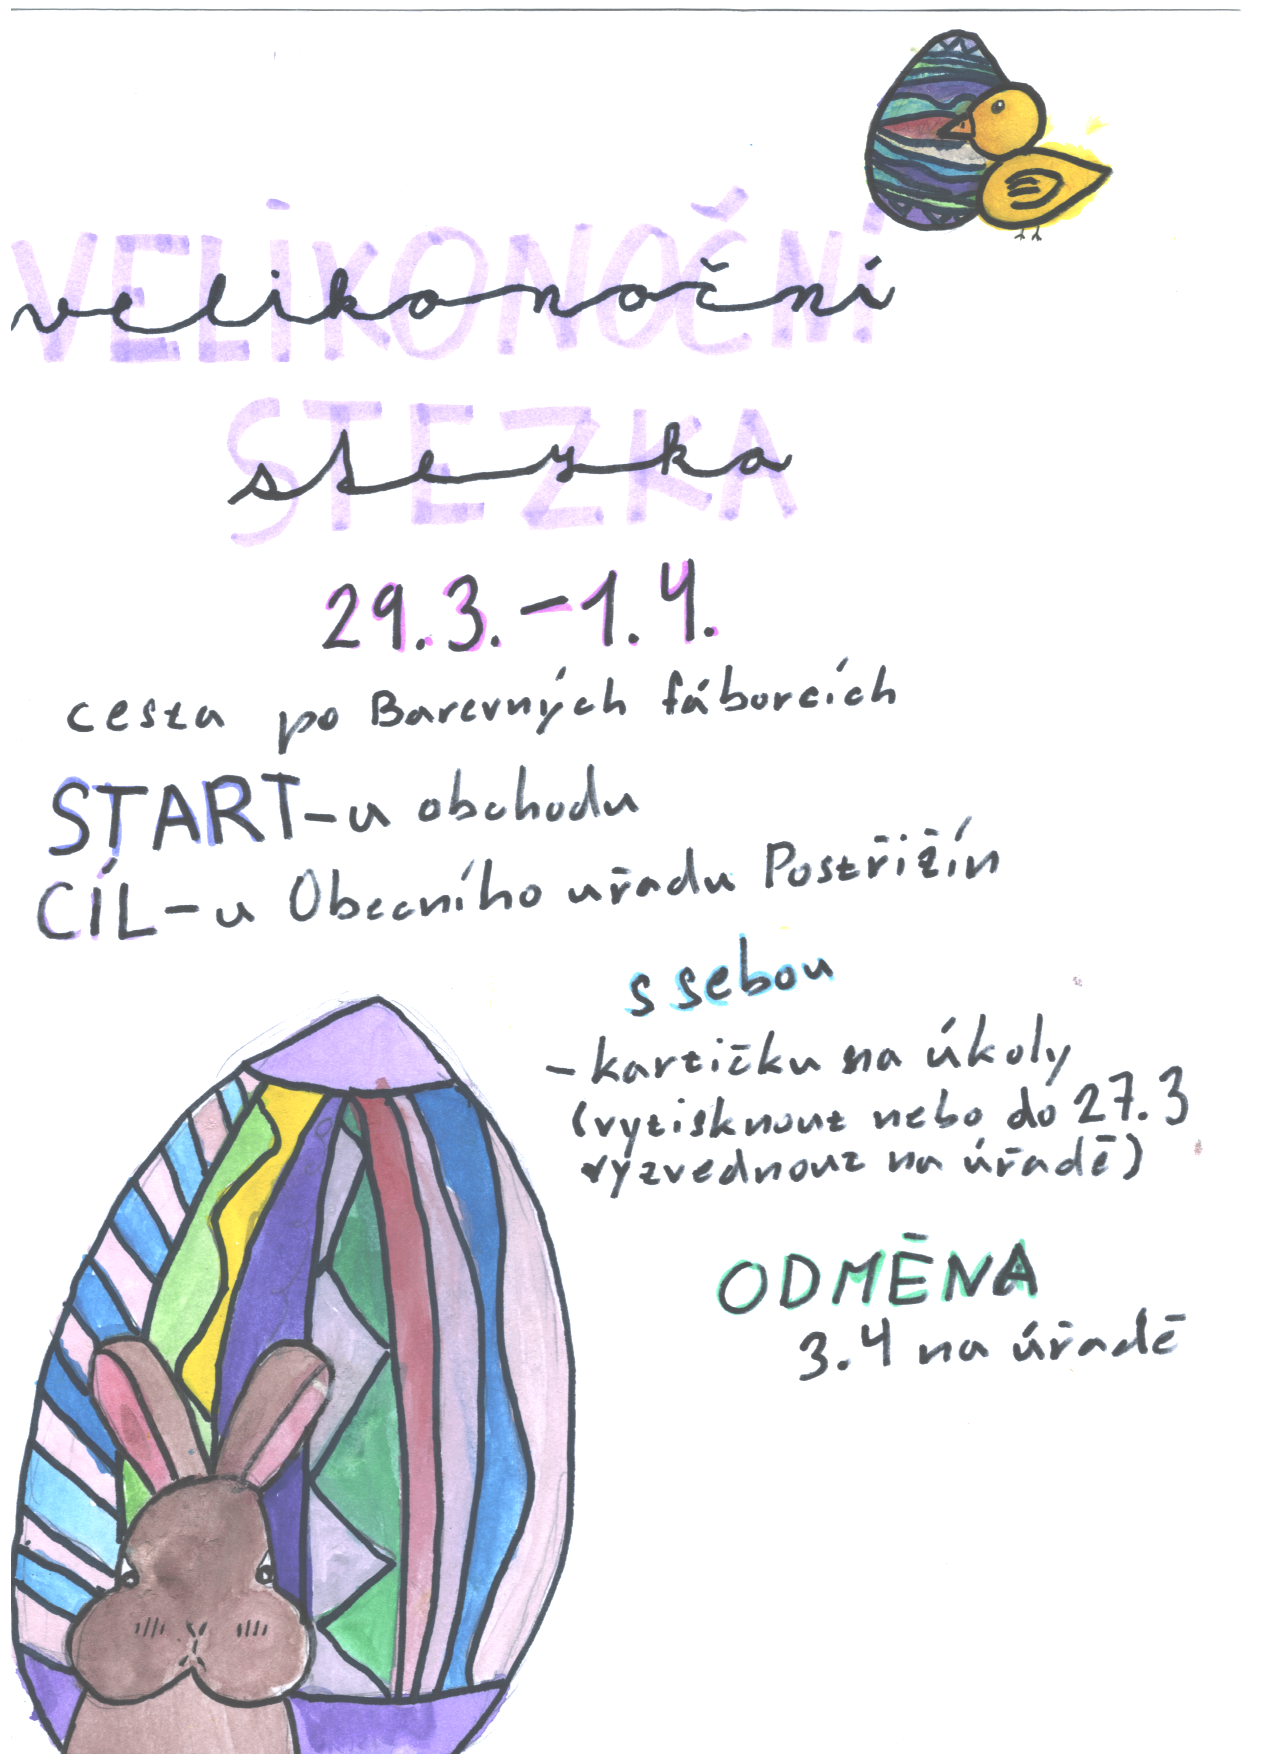 VELIKONOČNÍ
velikonoční
STEZKA
stezka
29.3.-1.4.
cesta po Barevných fáborcích
START-u obchodu
CÍL-u Obecního uřadu Postřižín
s sebou
-kartičku na úkoly
(vytisknout nebo do 27.3
vyzvednout na úřadě)
ODMĚNA
3.4 na úřadě